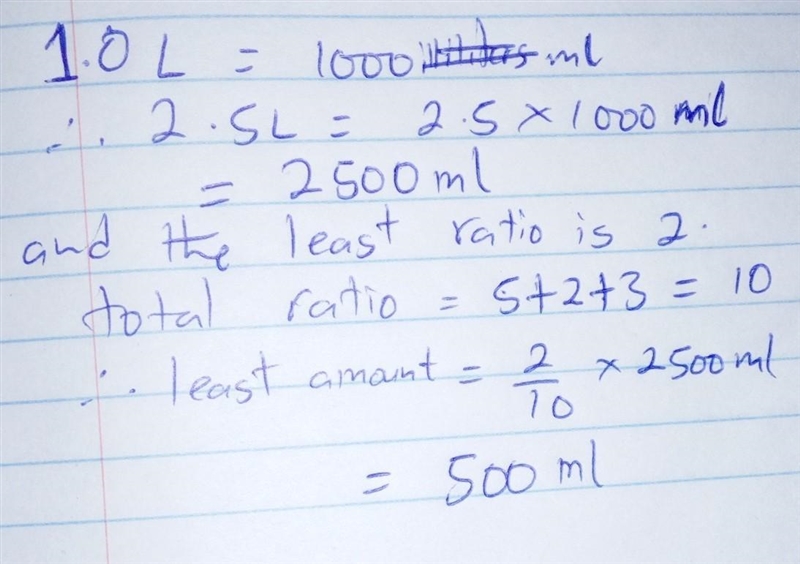 1.0 L = 1000 ml
∴ 2.5L = 2.5 × 1000 ml
= 2500 ml
and the least ratio is 2.
total ratio = 5+2+3 = 10
∴ least amount = 2/10 × 2500 ml
= 500 ml